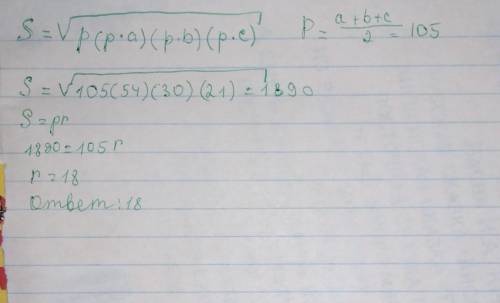 S = √p(p·a)(p·b)(p·c) P = a+b+c/2 = 105
S = √105(54)(30)(21) = 1890
S = pr
1890 = 105 r
r = 18
Ответ: 18